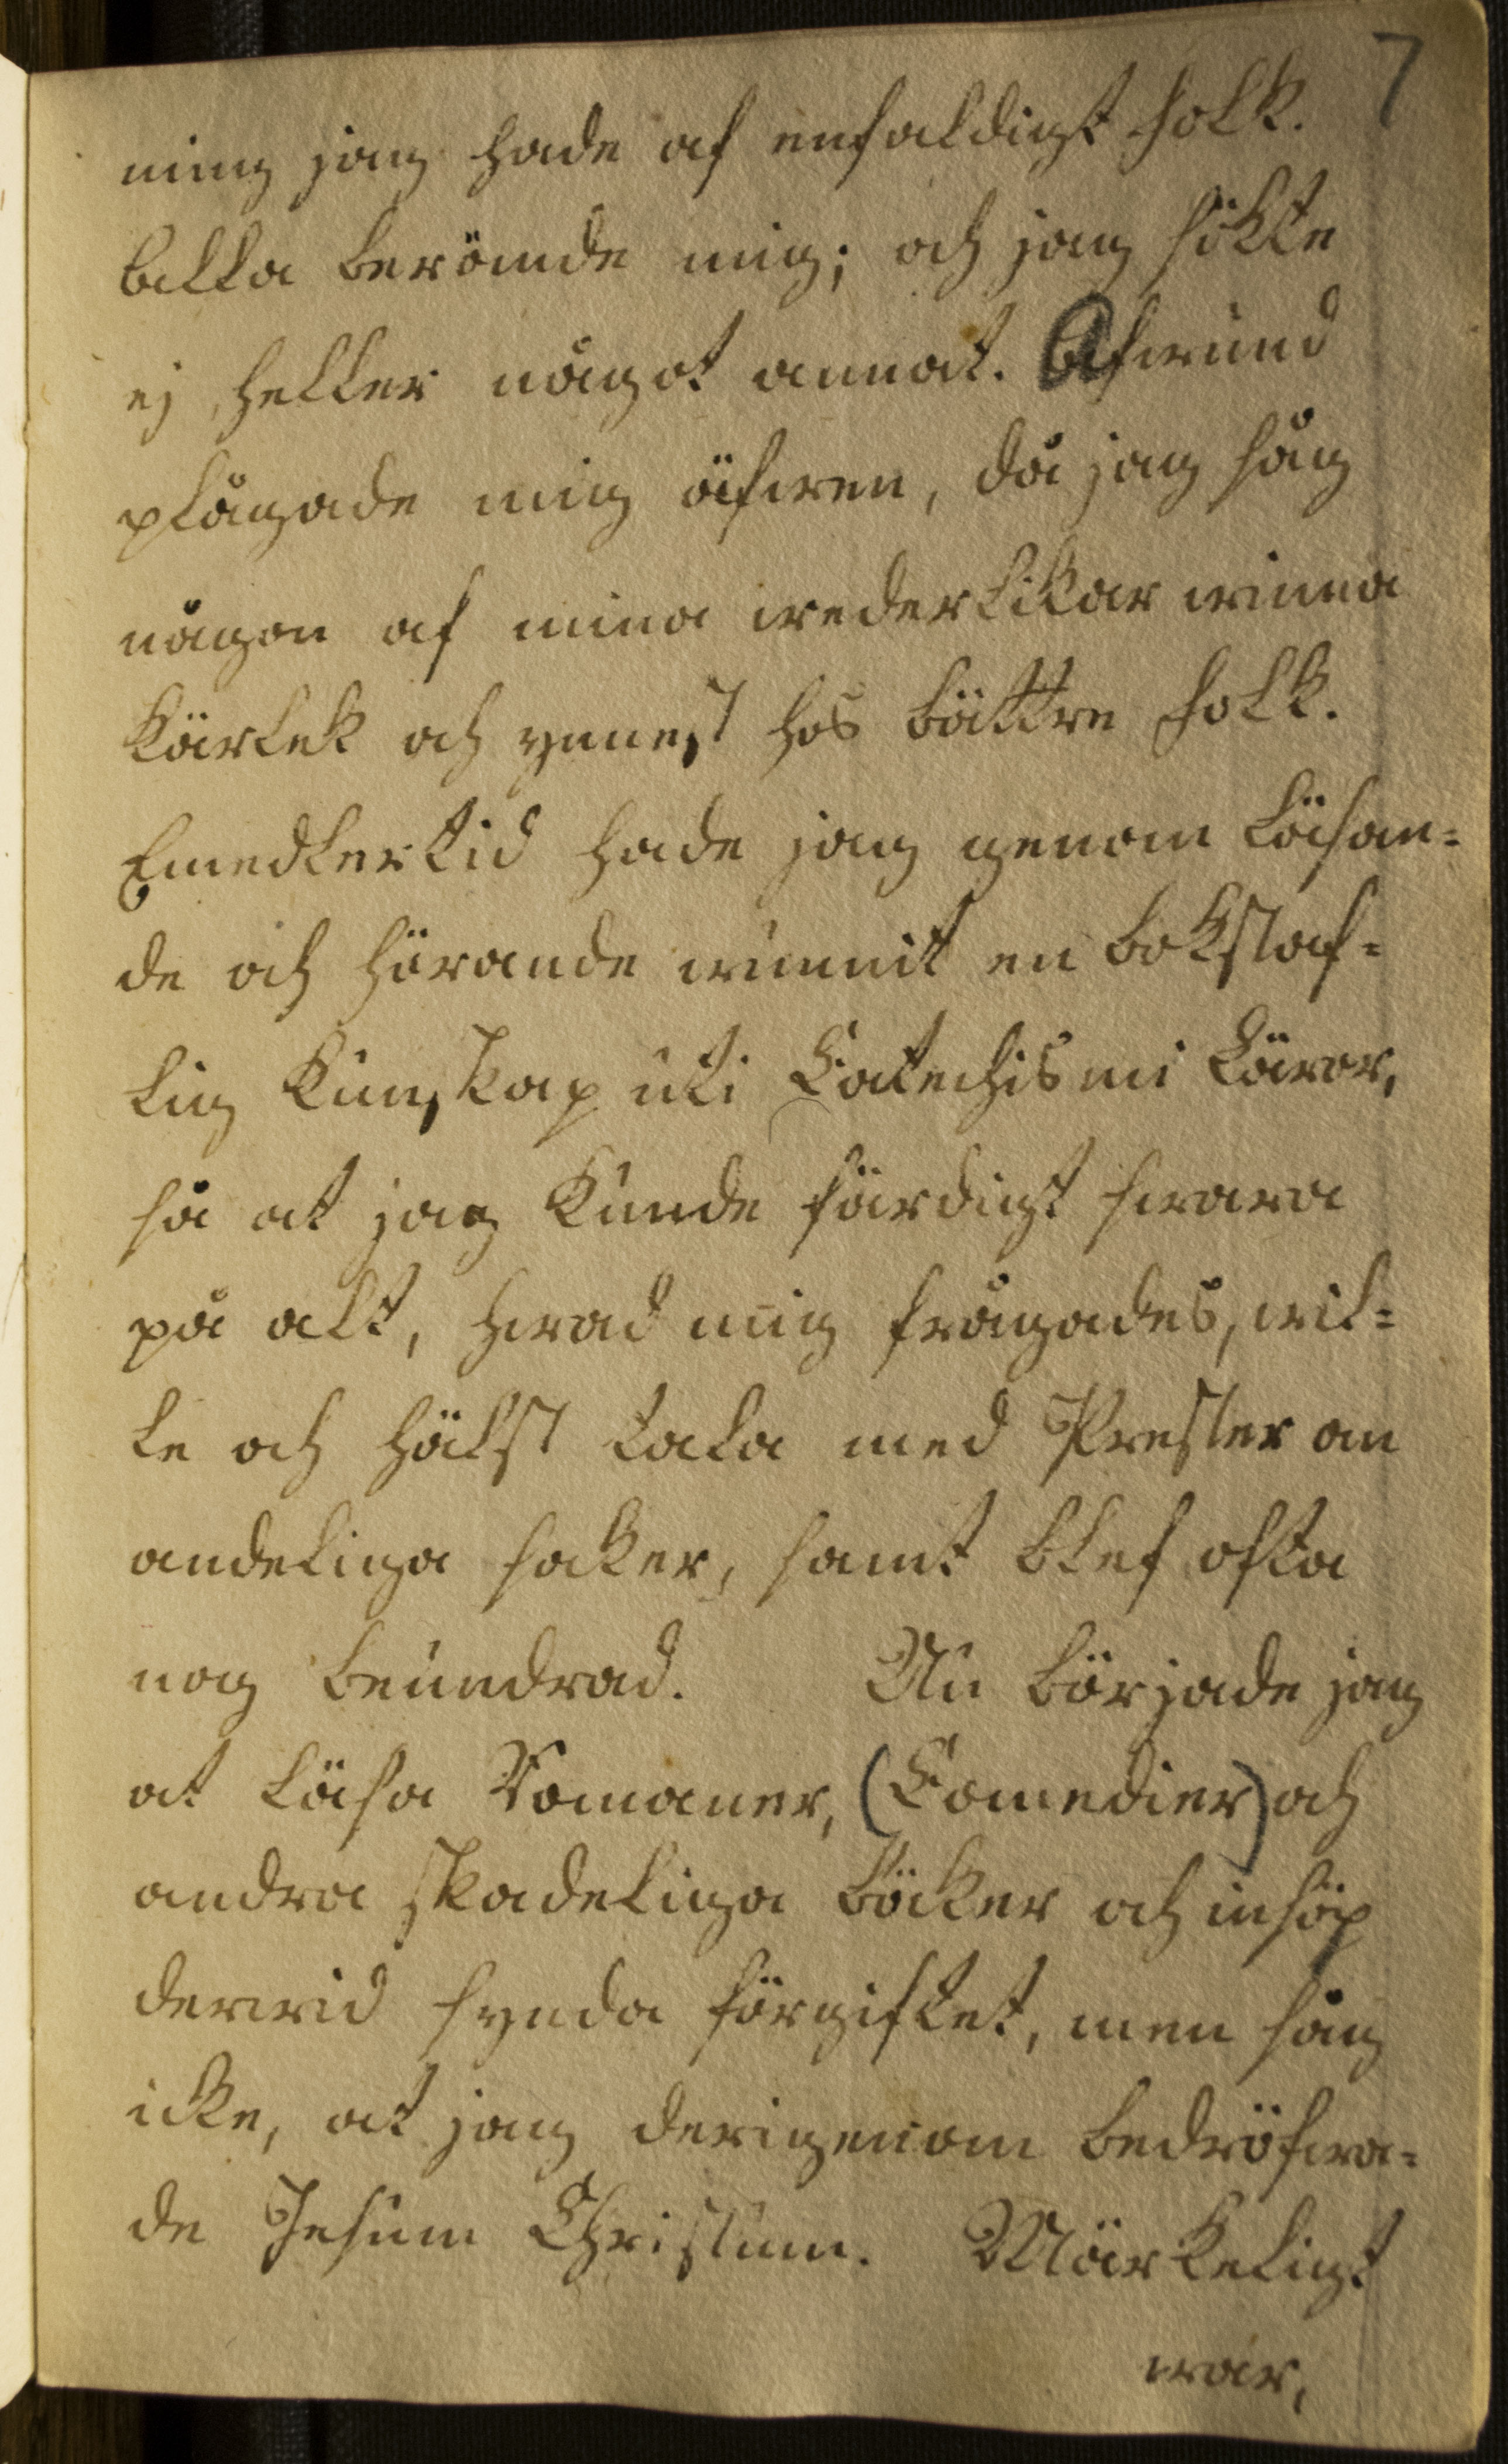 7
ning jag hade af enfaldigt folk.
Alla berömde mig; och jag sökte
ej heller något annat. Afwund
plågade mig äfwen, då jag såg
någon af mina wederlikar winna
kärlek och ynnest hos bättre folk.
Emedlertid hade jag genom läsan=
de och hörande wunnit en bokstaf=
lig kunskap uti Catechismi läror,
så at jag kunde färdigt swara
på alt, hwad mig frågades, wil=
le och hälst tala med Prester om
andeliga saker, samt blef ofta
nog beundrad. Nu började jag
at läsa Romaner, (Comedier) och
andra skadeliga böcker och insöp
derwid synda förgiftet, men såg
icke, at jag derigenom bedröfwa=
de Jesum Christum. Märkeligt
war,